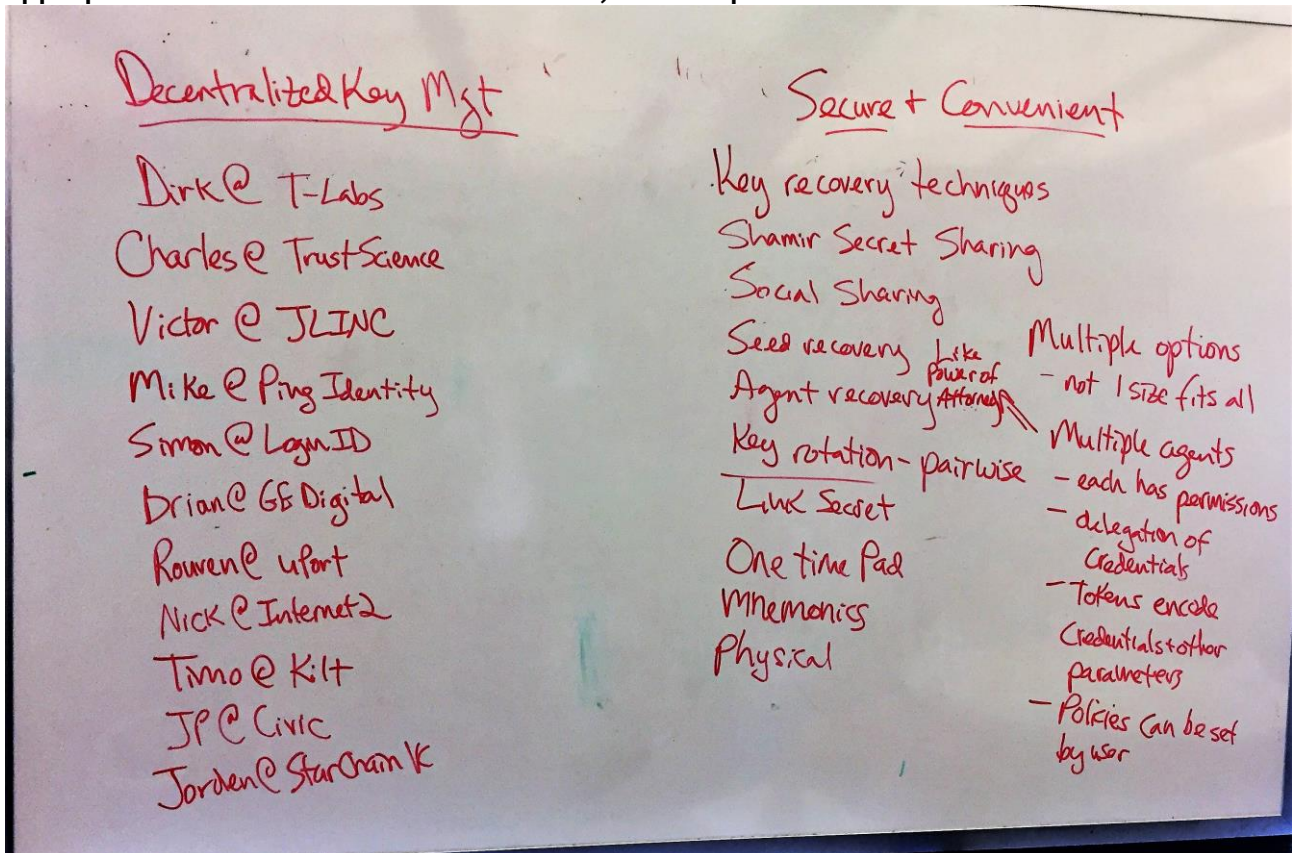 Decentralized Key Mgt
Dirk @ T-Labs
Charles @ TrustScience
Victor @ JLINC
Mike @ Ping Identity
Simon @ LoginID
Brian @ GE Digital
Rouven @ uPort
Nick @ Internet2
Timo @ Kilt
JP @ Civic
Jorden @ StarChain K
Secure + Convenient
Key recovery techniques
Shamir Secret Sharing
Social Sharing
Seed recovery
Agent recovery
Like
Power of
Attorney
Key rotation - pairwise
Link Secret
One time Pad
Mnemonics
Physical
Multiple options
- not 1 size fits all
Multiple agents
- each has permissions
- delegation of
Credentials
- Tokens encode
Credentials + other
parameters
- Policies can be set
by user